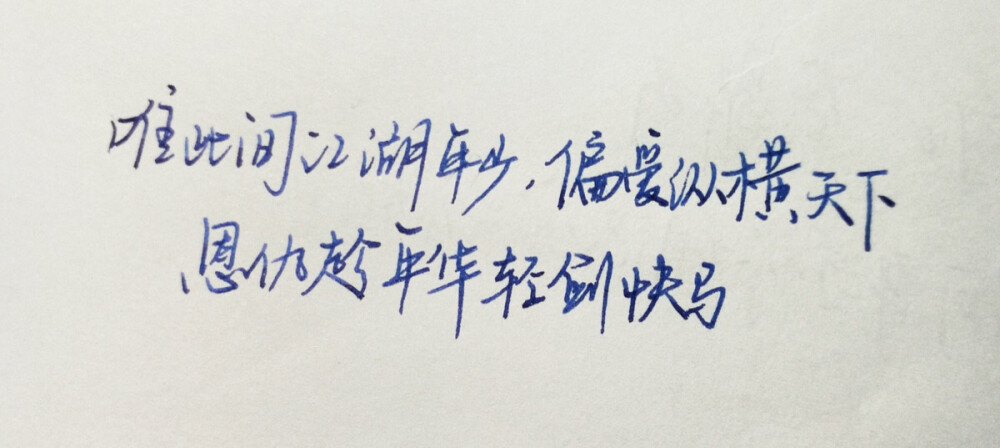 唯此间江湖年少，偏爱纵横天下
恩仇趁年华轻剑快马